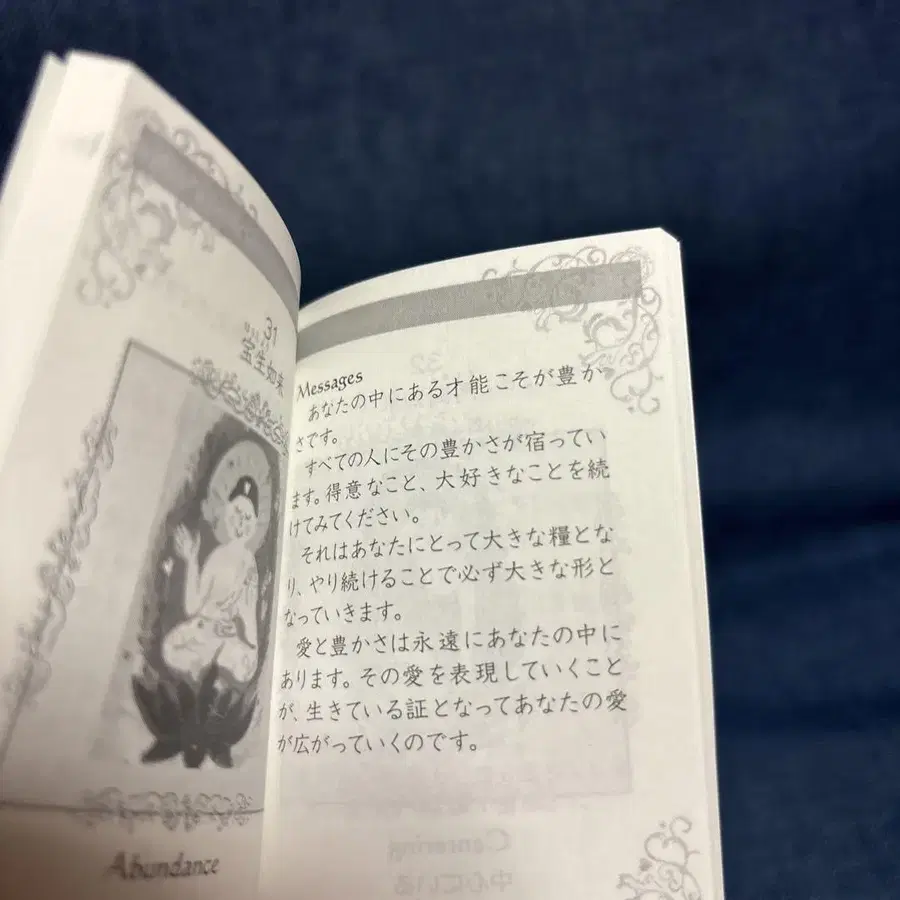 31
宝生如来
Abundance
Messages
あなたの中にある才能こそが豊か
さです。
すべての人にその豊かさが宿ってい
ます。得意なこと、大好きなことを続
けてみてください。
それはあなたにとって大きな糧とな
り、やり続けることで必ず大きな形と
なっていきます。
愛と豊かさは永遠にあなたの中に
あります。その愛を表現していくこと
が、生きている証となってあなたの愛
が広がっていくのです。
32
Centering
中心にいる